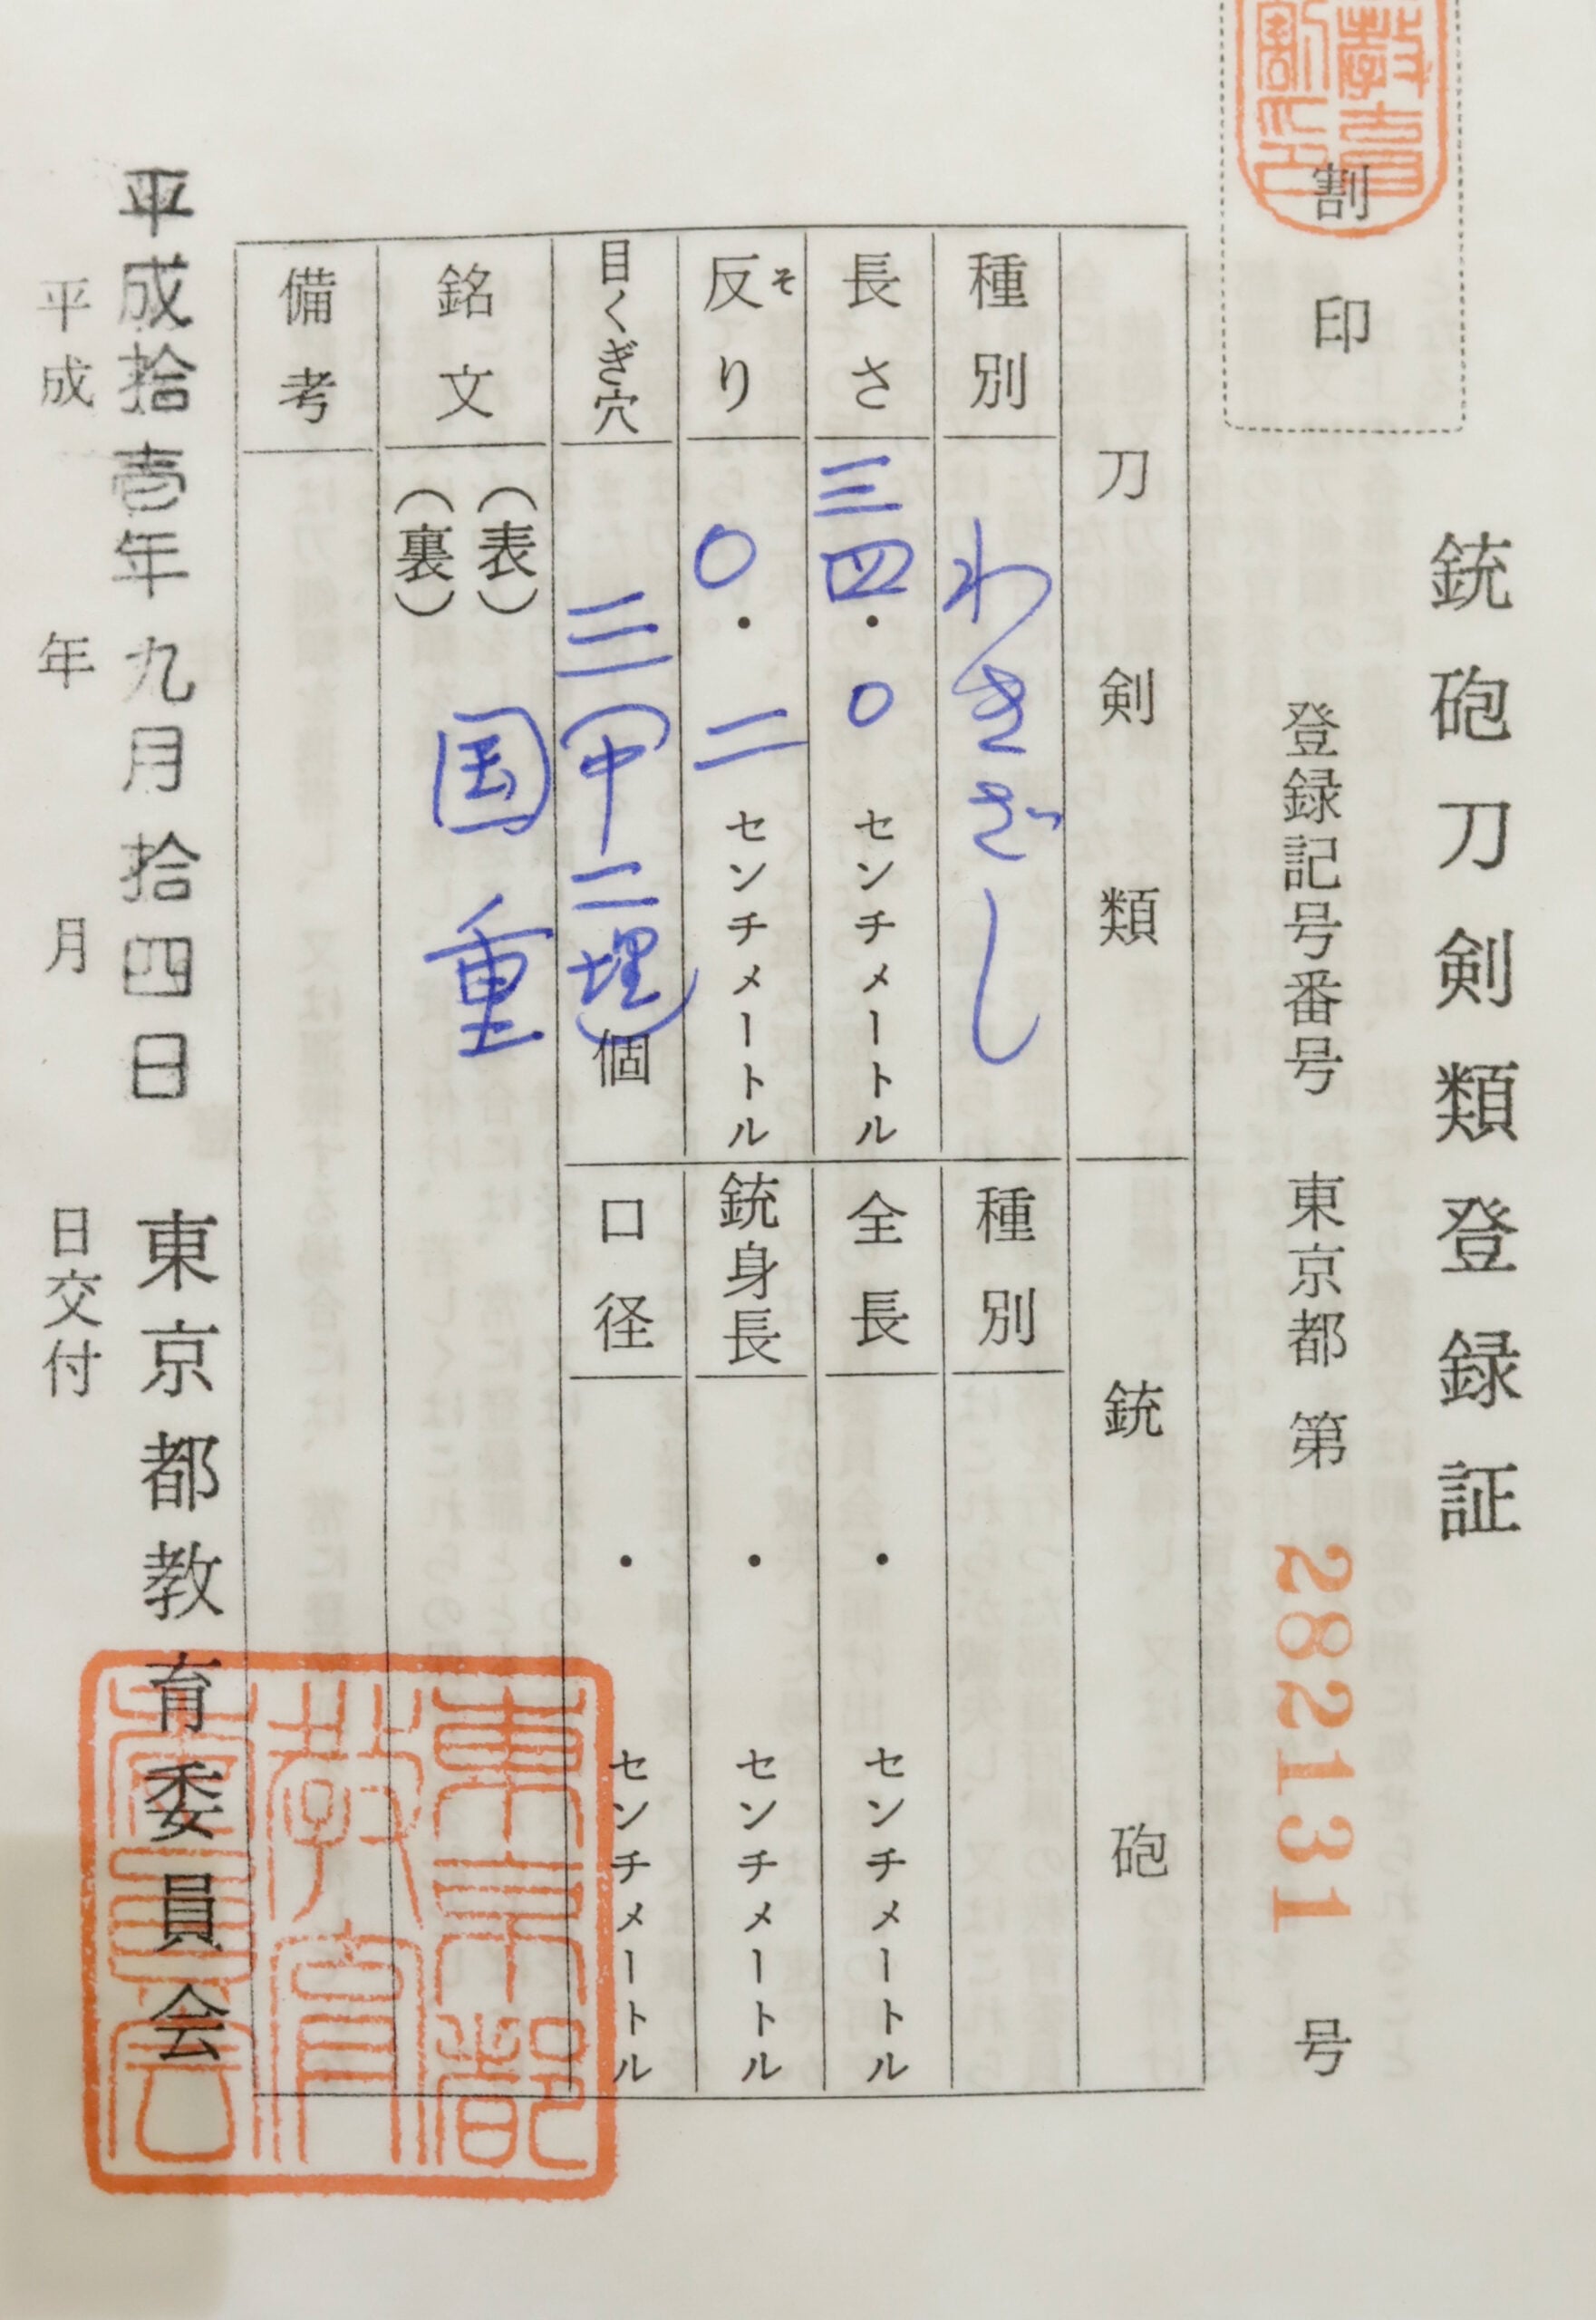 銃砲刀剣類登録証
割印
登録記号番号 東京都 第 282131 号
刀剣類
銃砲
種別 わきざし
種別
長さ 三四・0 センチメートル
全長 ・ センチメートル
反り そ 0・二 センチメートル
銃身長 ・ センチメートル
目くぎ穴 三(中二埋)個
口径 ・ センチメートル
銘文 (表) 国重
(裏)
備考
平成拾壱年九月拾四日 東京都教育委員会
平成 年 月 日交付
東京都
教育
委員会